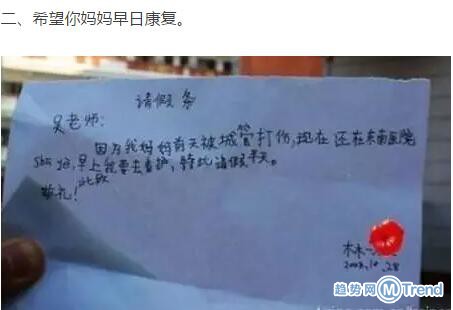 二、希望你妈妈早日康复。
请假条
吴老师:
因为我妈妈前天被城管打伤,现在还在东南医院
早上我要去看护,特此请假半天。
此致
敬礼!
林一
2008.10.28
趋势网 Trend